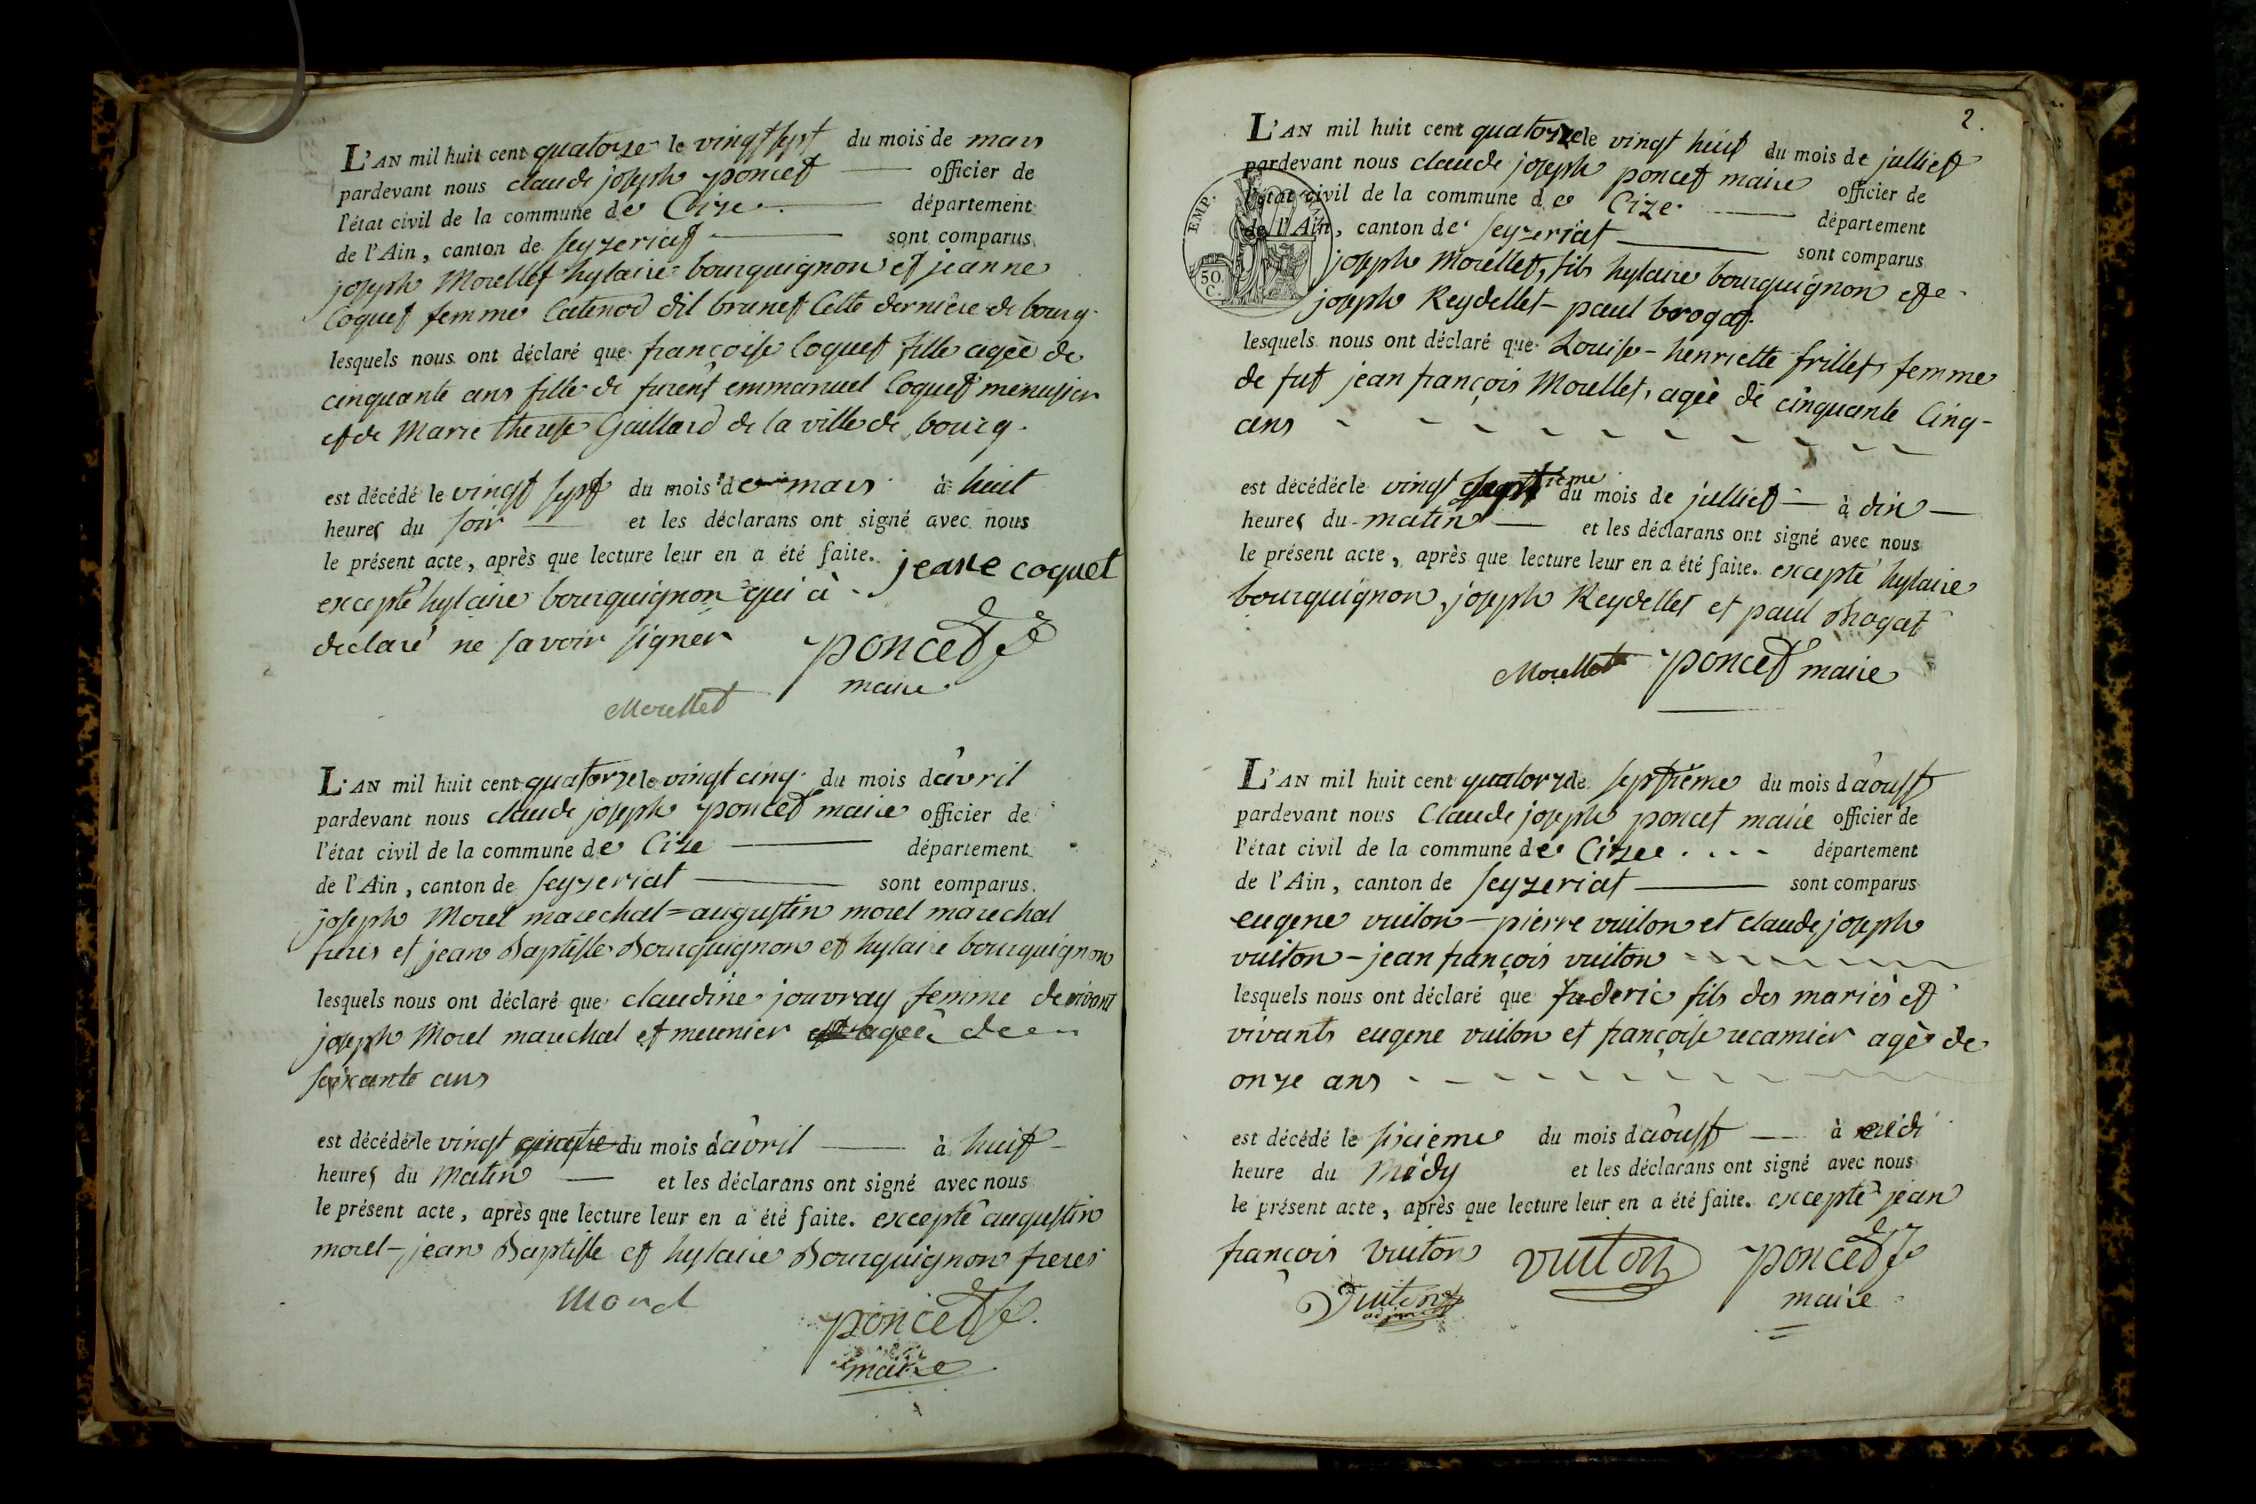 L'AN mil huit cent quatorze le vingt sept du mois de mars
pardevant nous claude joseph poncet officier de
l'état civil de la commune de Cize département
de l'Ain, canton de seyzeriat sont comparus
joseph Morellet hylaire bourguignon et jeanne
Coquet femme Catenod dil brunet Cette derniere de bourg.
lesquels nous ont déclaré que françoise Coquet fille agèe de
cinquante ans fille de furent emmanuel Coquet menusier
et de Marie therese Gaillard de la ville de bourg.
est décédé le vingt sept du mois de mars à huit
heures du soir et les déclarans ont signé avec nous
le présent acte, après que lecture leur en a été faite. jeane coquet
excepté hylaire bourguignon qui à
declaré ne savoir signer poncet
maire
Morellet
L'AN mil huit cent quatorze le vingt cinq du mois d'avril
pardevant nous claude joseph poncet maire officier de
l'état civil de la commune de Cize département
de l'Ain, canton de seyzeriat sont comparus
joseph Morel marechal = augustin morel marechal
freres et jean Baptiste Bourguignon et hylaire bourguignon
lesquels nous ont déclaré que claudine jouvray femme de vivant
joseph Morel marechal et meunier agèe de
soixante ans
est décédée le vingt quatre du mois d'avril à huit
heures du matin et les déclarans ont signé avec nous
le présent acte, après que lecture leur en a été faite. excepté augustin
morel - jean Baptiste et hylaire Bourguignon freres
Morel
poncet
maire
2.
L'AN mil huit cent quatorze le vingt huit du mois de julliet
pardevant nous claude joseph poncet maire officier de
l'état civil de la commune de Cize département
de l'Ain, canton de seyzeriat sont comparus
EMP.
50 C.
joseph Morellet, fils hylaire bourguignon et
joseph Reydellet - paul brogat.
lesquels nous ont déclaré que Louise - henriette frillet, femme
de fut jean françois Morellet, agèe de cinquante Cinq -
ans
est décédée le vingt septième du mois de julliet à dix
heures du matin et les déclarans ont signé avec nous
le présent acte, après que lecture leur en a été faite. excepté hylaire
bourguignon, joseph Reydellet et paul Brogat
Morellet poncet maire
L'AN mil huit cent quatorze le septième du mois d'aoust
pardevant nous Claude joseph poncet maire officier de
l'état civil de la commune de Cize département
de l'Ain, canton de seyzeriat sont comparus
eugene vuiton - pierre vuiton et claude joseph
vuiton - jean françois vuiton
lesquels nous ont déclaré que frederic fils des mariès et
vivants eugene vuiton et françoise recamier agè de
onze ans
est décédé le sixieme du mois d'aoust à midi
heure du Midy et les déclarans ont signé avec nous
le présent acte, après que lecture leur en a été faite. excepté jean
françois Vuiton vuiton poncet
Vuiton maire
adjoint